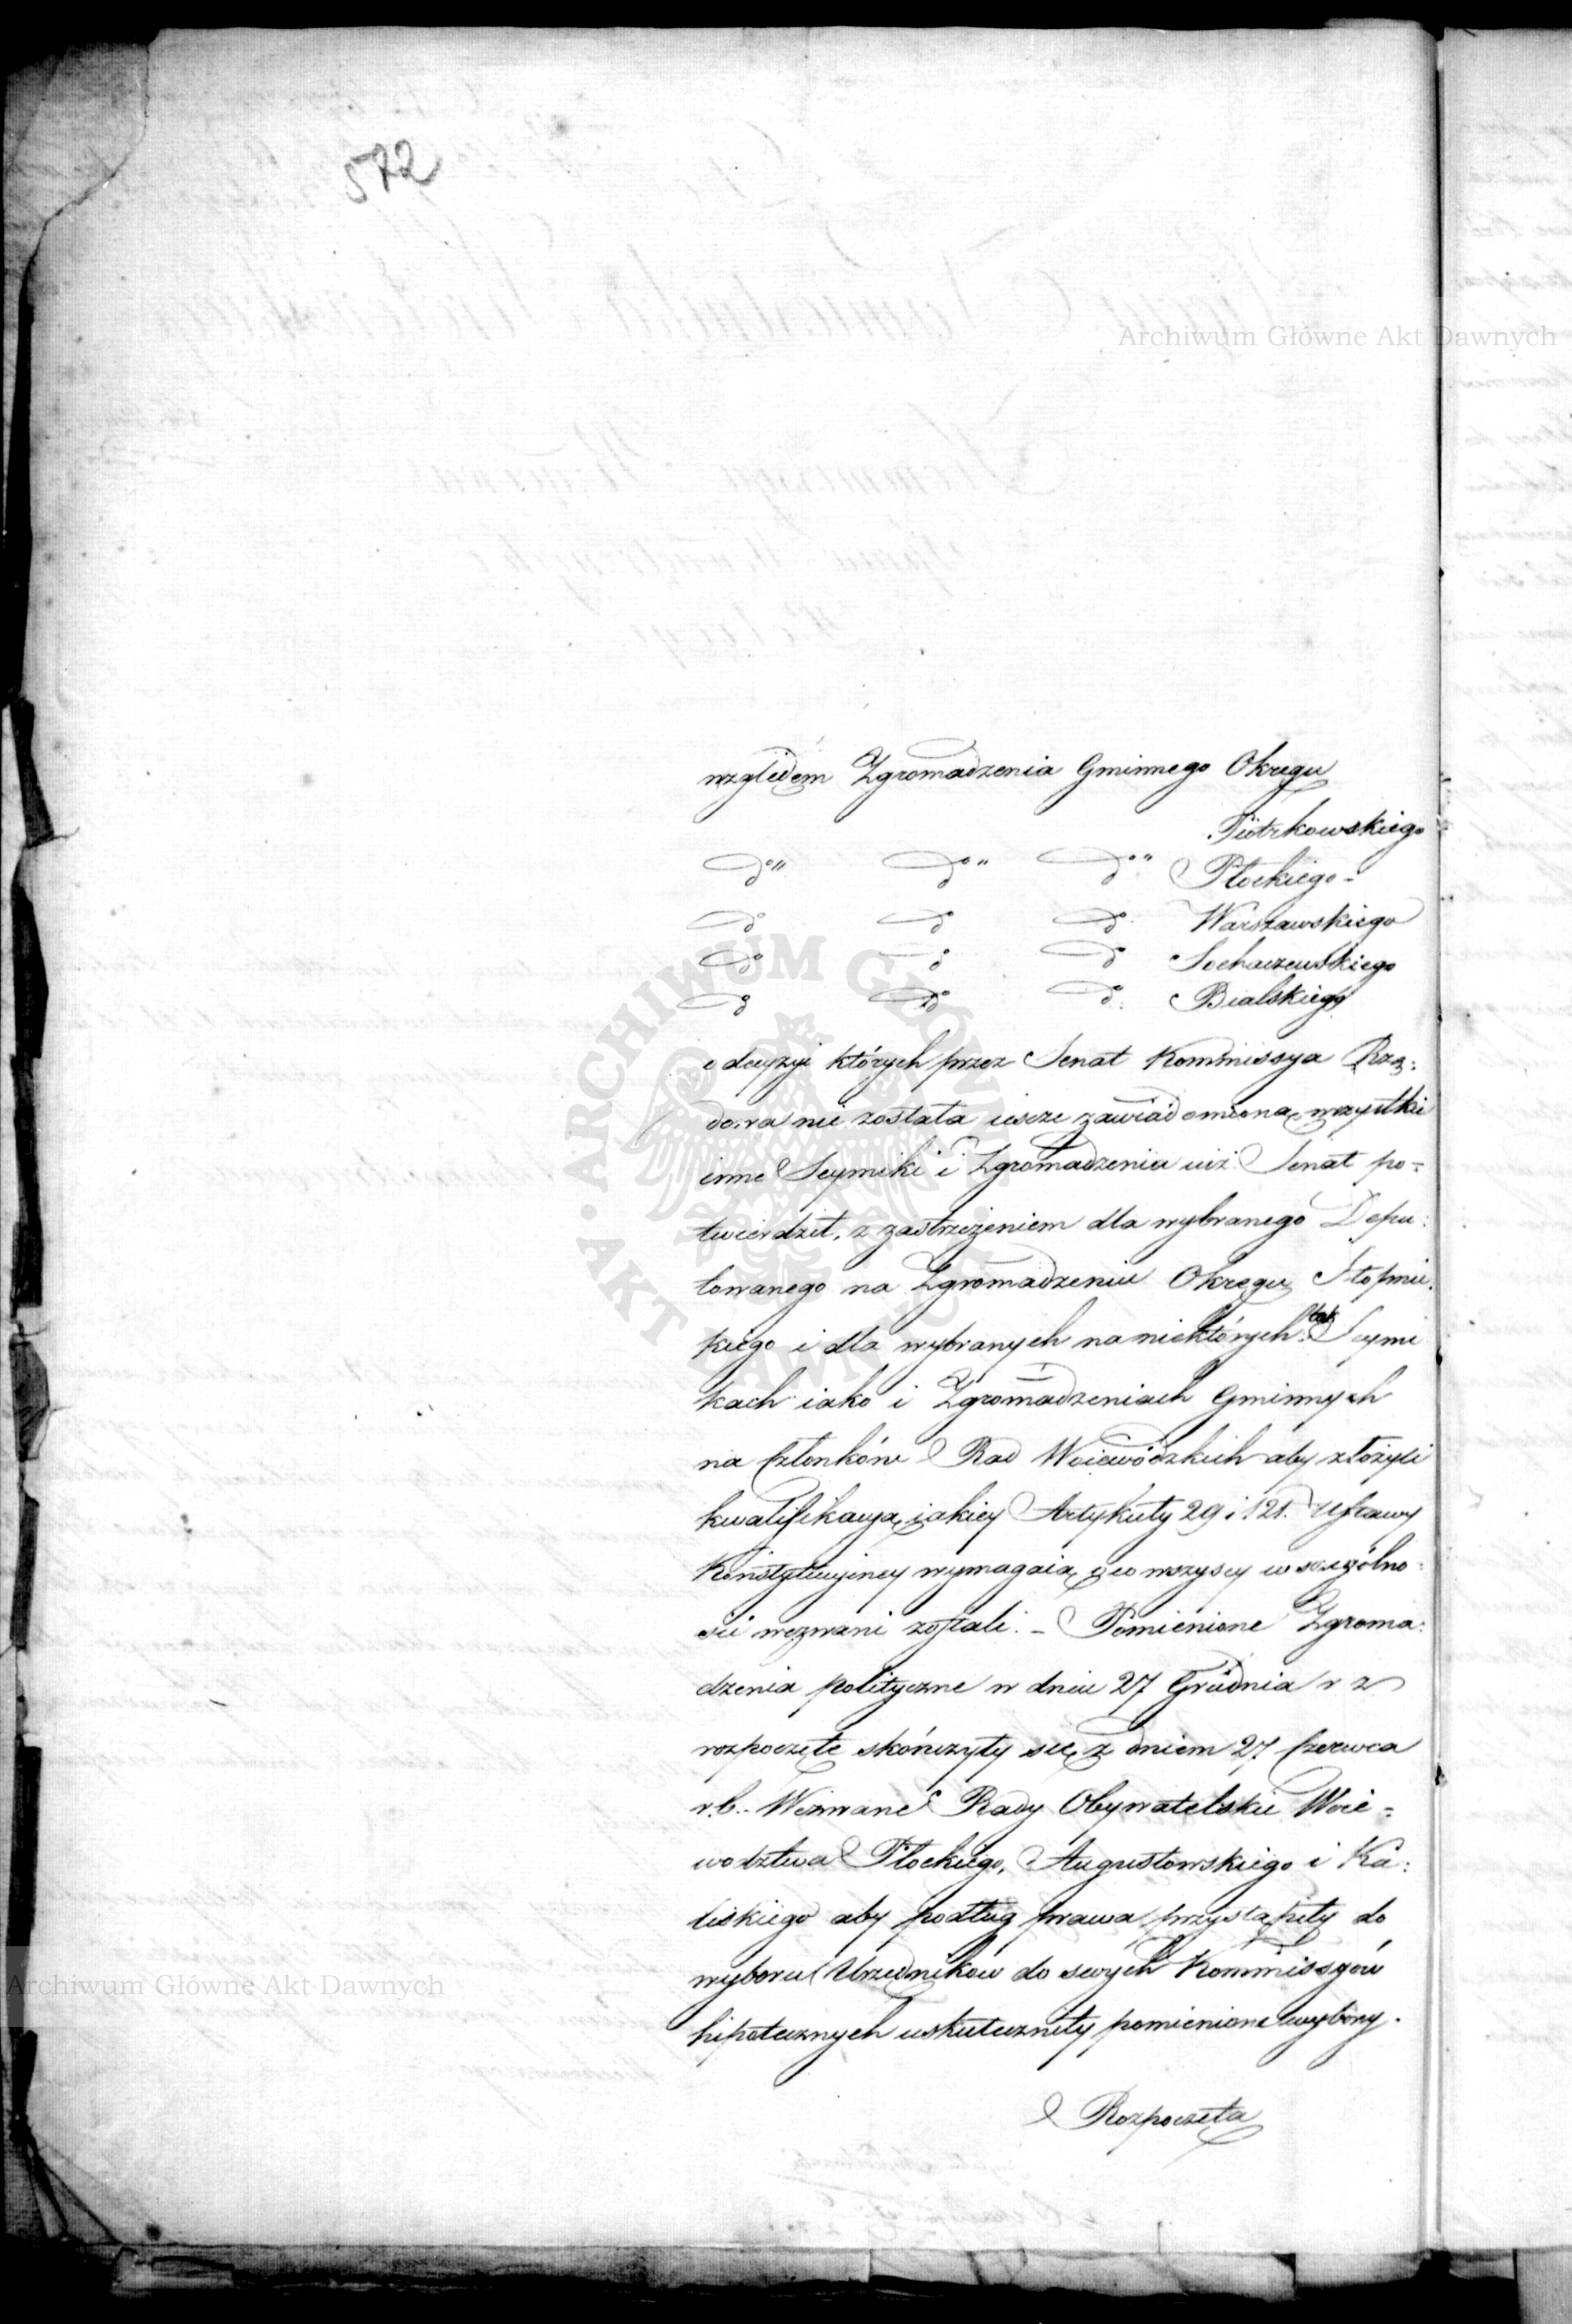 572
Archiwum Główne Akt Dawnych
względem Zgromadzenia Gminnego Okręgu
Piotrkowskiego
do" do" do" Płockiego -
do do do Warszawskiego
do do do Sochaczewskiego
do do do Bialskiego
o decyzyi których przez Senat Kommissya Rzą:
dowa nie została iescze zawiadomiona, wszystkie
inne Seymiki i Zgromadzenia iuż Senat po-
twierdził, z zastrzeżeniem dla wybranego Depu:
towanego na Zgromadzeniu Okręgu Stopnic:
kiego i dla wybranych na niektórych tak Seymi
kach iako i Zgromadzeniach Gminnych
na Członków Rad Woiewódzkich aby złożyli
kwalifikacyą, iakiey Artykuły 29 i 121. Ustawy
Konstytucyiney wymagaią, o co wszyscy w szczególno:
ści wezwani zostali. - Pomienione Zgroma:
dzenia polityczne w dniu 27 Grudnia r z
rozpoczęte skończyły się z dniem 27 Czerwca
r.b. Wezwane Rady Obywatelskie Woie-
wodztwa Płockiego, Augustowskiego i Ka:
liskiego aby podług prawa przystąpiły do
wyboru Urzedników do swych Kommissyów
hipotecznych uskuteczniły pomienione wybory.
Rozpoczęta
ARCHIWUM GŁÓWNE AKT DAWNYCH
Archiwum Główne Akt Dawnych